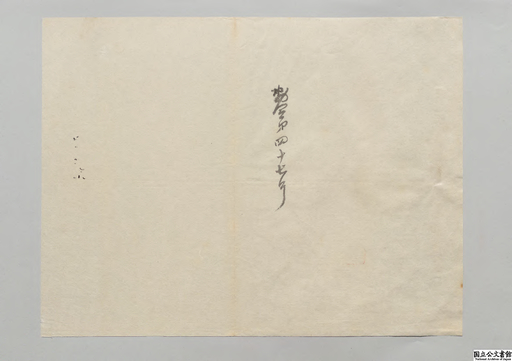 勅令第四十七号
国立公文書館
National Archives of Japan